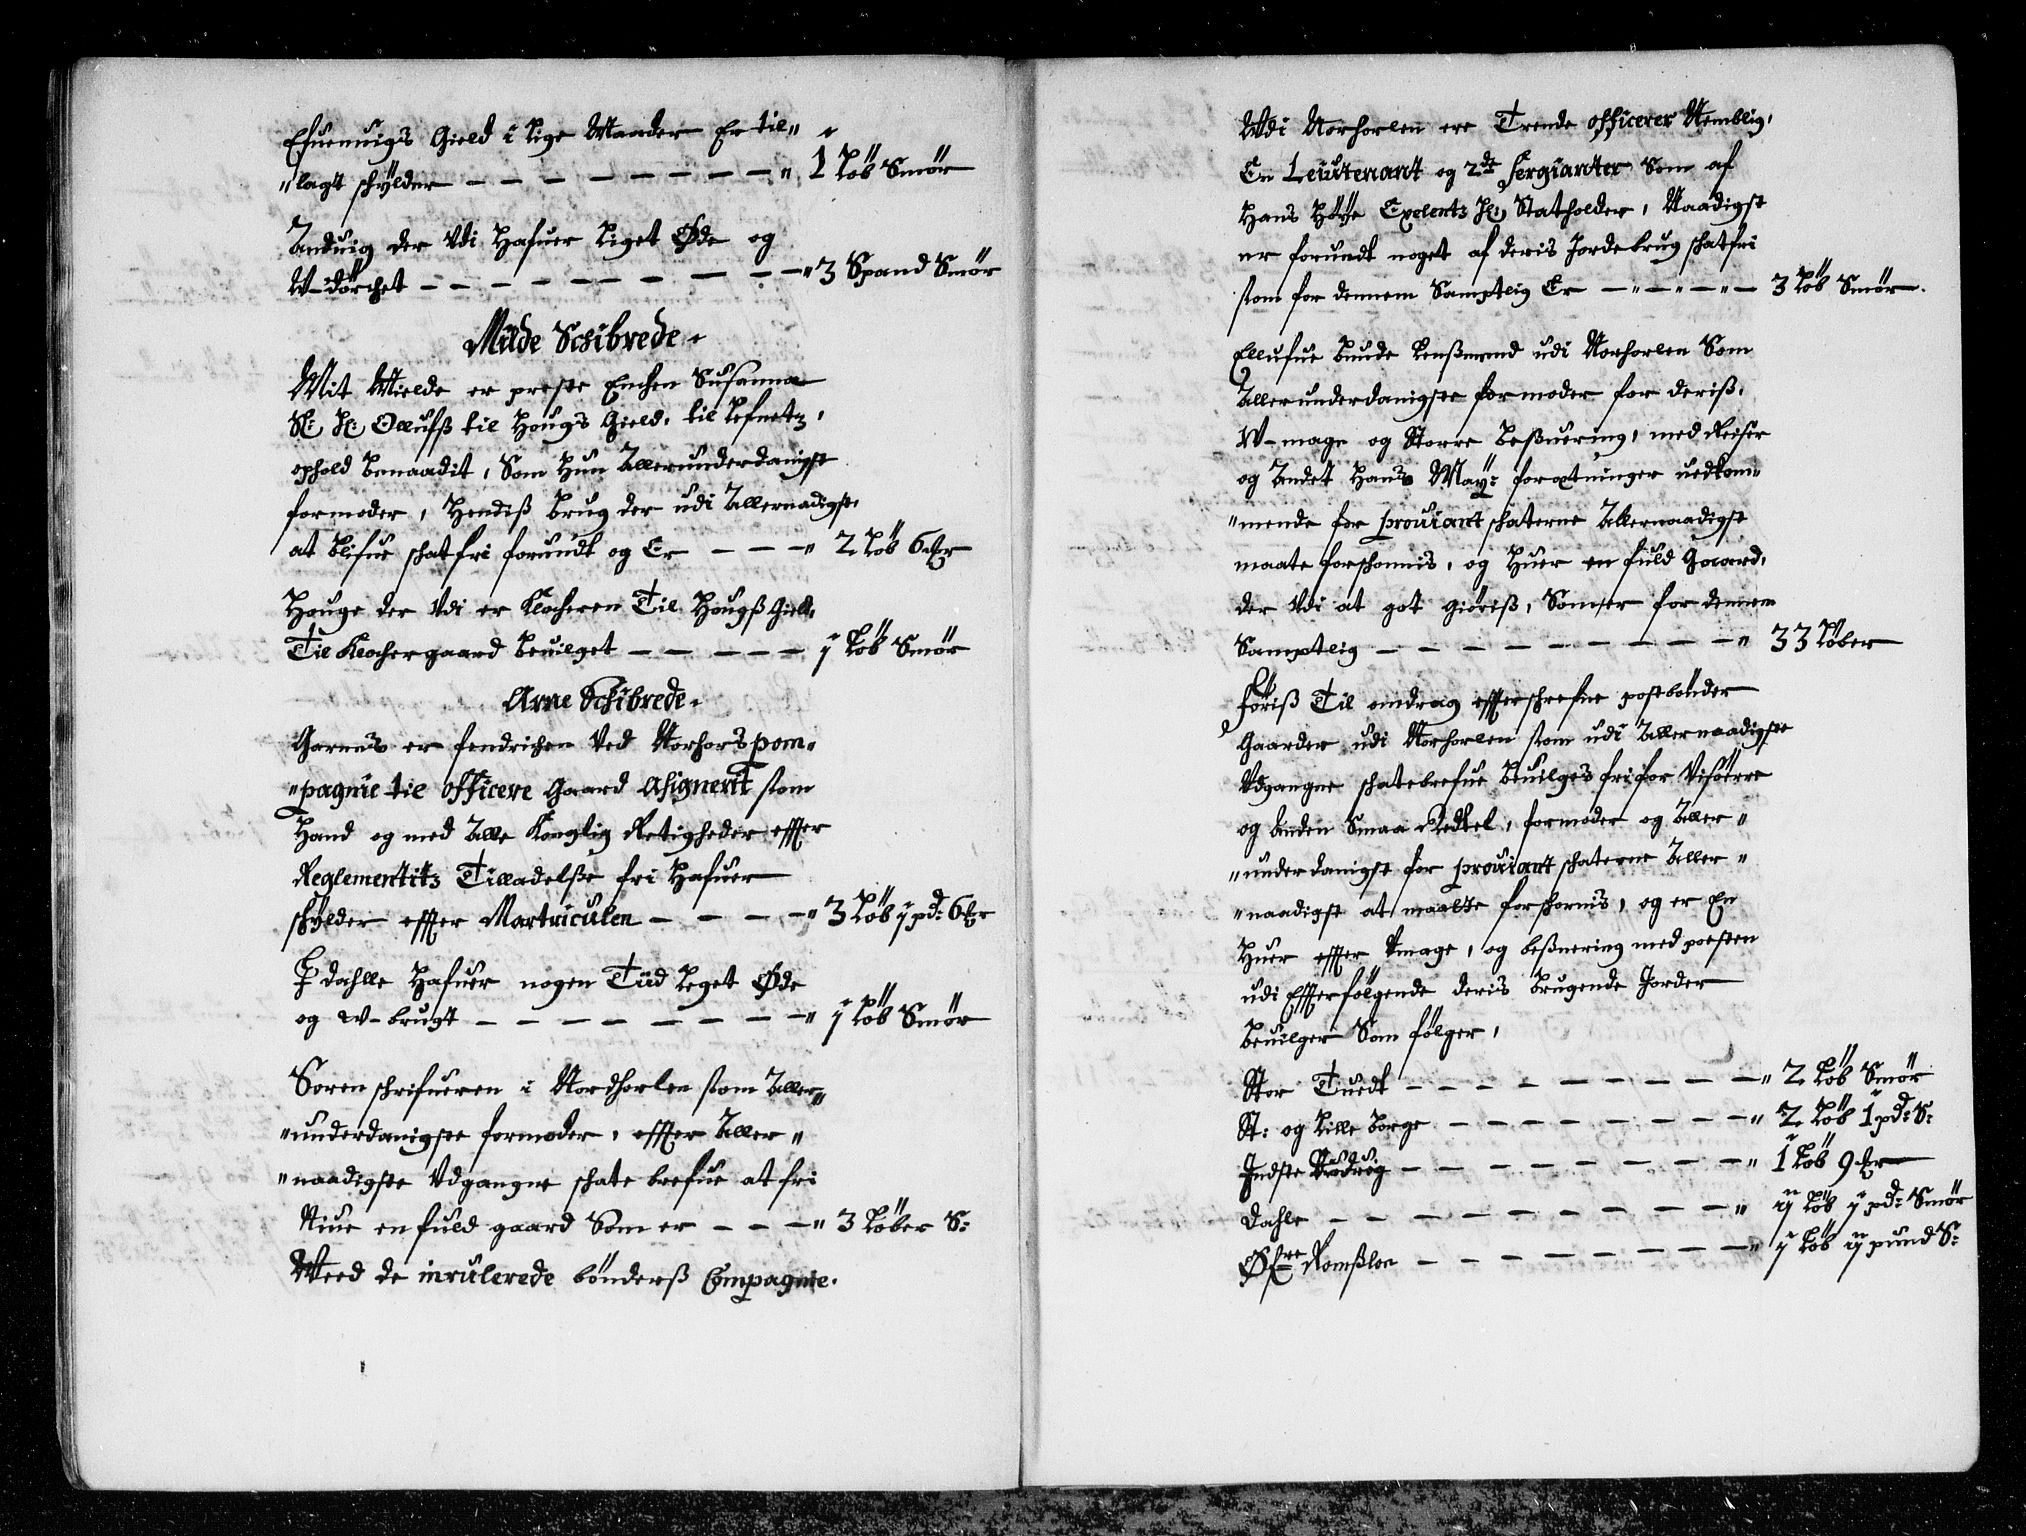 Efuenuigs Gield i lige Maader Er til„
„lagt schÿlder — — — — — — — — „ 1 Løb Smør
Anduig der Vdi Hafuer liget Øde og
W-dørchet — — — — — — — — — „ 3 Spand Smør
Milde Schibrede.
Mit Mielde er preste Enchen Susanna
Sl: Hr: Ollufß til Hougs Gield, til Lefnetz,
ophold benaadit, Som Hun Allerunderdanigst
formoder, Hendiß brug der udi Allernaadigste
at blifue schatfri forundt og Er — — — „ 2 Løb 6 mr
Houge der Vdi er Klocheren Til Hougß Gield,
Til Klochergaard beuilget — — — — — 1 Løb Smør
Arne Schibrede.
Garnes er fendrichen Ved Norhors pom„
„pagnie til officere Gaard Asignerit som
Hand og med Alle Konglig Retigheder effter
Reglementitz Tilladelße fri Hafuer
schÿlder effter Martriculen — — — — „ 3 Løb 1 pd: 6 mr
Dahlle Hafuer nogen Tiid leget Øde
og w-brugt — — — — — — — — — „ 1 Løb Smør
Soren schrifueren i Nordhorlen som Aller„
„underdanigste formoder, effter Aller„
„naadigste Vdgangne schatebrefue at fri
Niue en fuld gaard Som er — — — „ 3 Løber S:
Weed de inrulerede bønderß Compagnie.
Udi Norhorlen ere Trende officerer Nemblig,
En Leiutenant og 2de Sergianter Som af
Hans Høye Exelentz Hr: Statholder, Naadigst
er forundt noget af deris Jordebrug schatfri
som for dennem Samptlig Er — „ — „ — „ — 3 Løb Smør.
Ellufue bunde Lensmend udi Norhorlen Som
Allerunderdanigste formoder for deriß,
W-mage og Storre beßuering, med Reiser
og Andet Hans Maÿ: forretninger uedkom„
„mende for prouiant schaterne Allernaadigst
maate forschonnis, og Huer en fuld Gaard,
der Vdi at got giøriß, Somer for dennem
Samptlig — — — — — — — — — „ 33 Løber
føriß Til omdrag effterschrefne postbønder
Gaarder udi Norhorlen som udi Allernaadigste
Vdgangne schatebrefue beuilges fri for Visørre
og anden Smaa Redsel, formoder og Aller„
„underdanigst for prouiant schaterne Aller„
„naadigst at maatte forschonnis, og er En
Huer effter Vmage, og beßuering med posten
udi Effterfølgende deris brugende Jorder
beuilger Som følger,
Stor Tuedt — — — — — — — — „ 2 Løb Smør
St: og Lille Borge — — — — — — — „ 2 Løb 1 pd: S:
Indste — — — — — — — — „ 1 Løb 9 mr
Dahle — — — — — — — — — „ ij Løb j pd: Smør
Øfre Romßloe — — — — — — — — „ j Løb ij pund S: